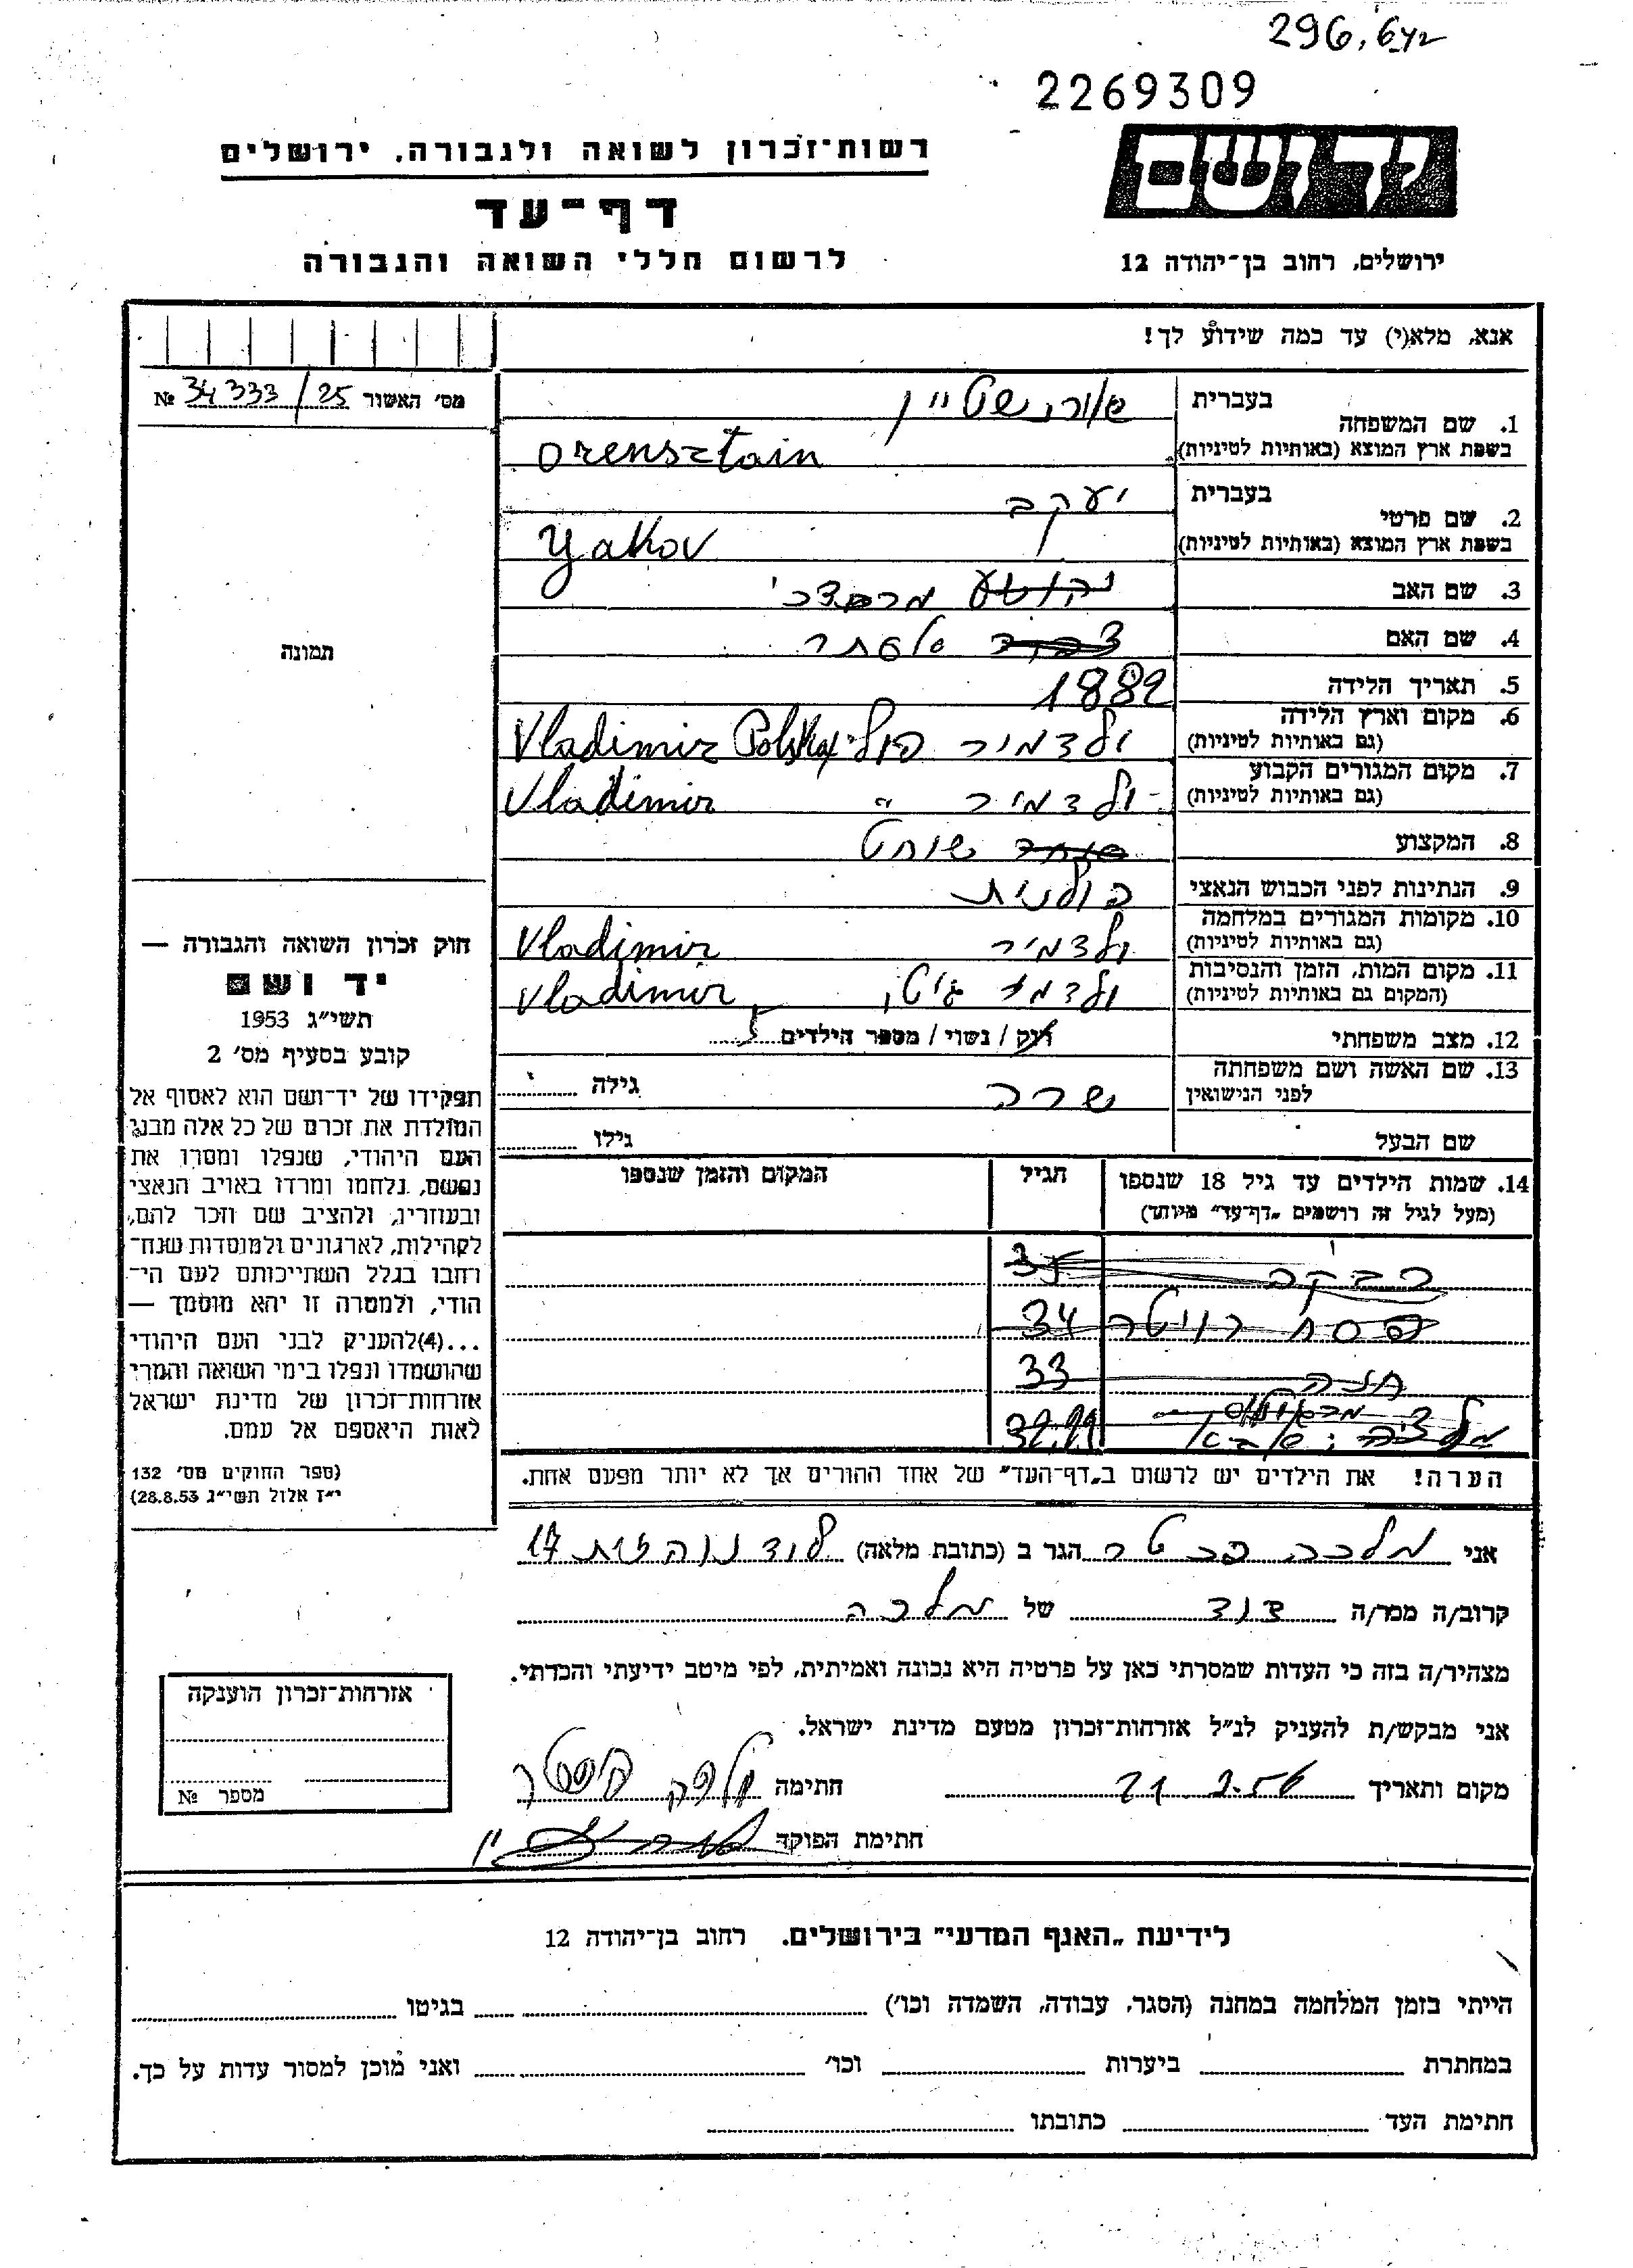 296, 642
2269309
יד ושם
רשות־זכרון לשואה ולגבורה, ירושלים
דף־עד
לרשום חללי השואה והגבורה
ירושלים, רחוב בן־יהודה 12
אנא, מלא(י) עד כמה שידוע לך!
מס׳ האשור 34333/25 №
1. שם המשפחה
בעברית אורנשטיין
בשפת ארץ המוצא (באותיות לטיניות) Orensztain
2. שם פרטי
בעברית יעקב
בשפת ארץ המוצא (באותיות לטיניות) Yakov
3. שם האב יהושע מרדכי
4. שם האם אסתר
5. תאריך הלידה 1882
6. מקום וארץ הלידה ולדמיר פולי Vladimir Polska
(גם באותיות לטיניות)
7. מקום המגורים הקבוע ולדמיר " Vladimir
(גם באותיות לטיניות)
8. המקצוע שוחט
9. הנתינות לפני הכבוש הנאצי פולנית
10. מקומות המגורים במלחמה ולדמיר Vladimir
(גם באותיות לטיניות)
11. מקום המות, הזמן והנסיבות ולדמיר גיטו, Vladimir
(המקום גם באותיות לטיניות)
12. מצב משפחתי רוק / נשוי / מספר הילדים 5
13. שם האשה ושם משפחתה
לפני הנישואין שרה גילה
שם הבעל גילו
14. שמות הילדים עד גיל 18 שנספו הגיל המקום והזמן שנספו
(מעל לגיל זה רושמים „דף־עד״ מיוחד)
רבקה 35
פסח 34
חנה 33
הערה! את הילדים יש לרשום ב„דף־העד״ של אחד ההורים אך לא יותר מפעם אחת.
תמונה
חוק זכרון השואה והגבורה —
יד ושם
תשי״ג 1953
קובע בסעיף מס׳ 2
תפקידו של יד־ושם הוא לאסוף אל
המולדת את זכרם של כל אלה מבני
העם היהודי, שנפלו ומסרו את
נפשם, נלחמו ומרדו באויב הנאצי
ובעוזריו, ולהציב שם וזכר להם,
לקהילות, לארגונים ולמוסדות שנח־
רבו בגלל השתייכותם לעם הי־
הודי, ולמטרה זו יהא מוסמך —
...(4)להעניק לבני העם היהודי
שהושמדו ונפלו בימי השואה והמרי
אזרחות־זכרון של מדינת ישראל
לאות היאספם אל עמם.
(ספר החוקים מס׳ 132
י״ז אלול תשי״ג 28.8.53)
אני מלכה הגר ב (כתובת מלאה) לוד נוה זית 17
קרוב/ה מכר/ה דוד של מלכה
מצהיר/ה בזה כי העדות שמסרתי כאן על פרטיה היא נכונה ואמיתית, לפי מיטב ידיעתי והכרתי.
אני מבקש/ת להעניק לנ״ל אזרחות־זכרון מטעם מדינת ישראל.
מקום ותאריך 21.2.56 חתימה
חתימת הפוקד
אזרחות־זכרון הוענקה
מספר №
לידיעת „האגף המדעי״ בירושלים. רחוב בן־יהודה 12
הייתי בזמן המלחמה במחנה (הסגר, עבודה, השמדה וכו׳) בגיטו
במחתרת ביערות וכו׳ ואני מוכן למסור עדות על כך.
חתימת העד כתובתו